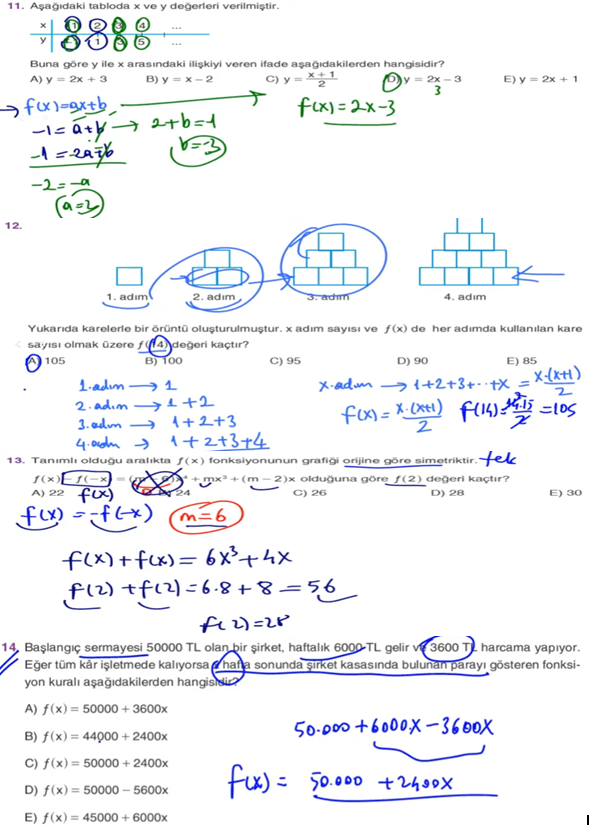 11. Aşağıdaki tabloda x ve y değerleri verilmiştir.
x 1 2 3 4 ...
y -1 1 3 5 ...
Buna göre y ile x arasındaki ilişkiyi veren ifade aşağıdakilerden hangisidir?
A) y = 2x + 3 B) y = x – 2 C) y = x + 1 / 2 D) y = 2x – 3 E) y = 2x + 1
3
→ f(x)=ax+b
f(x)=2x-3
-1 = a+b → 2+b=-1
-1 = -2a+b
b=-3
-2 = -a
a=2
12.
1. adım 2. adım 3. adım 4. adım
Yukarıda karelerle bir örüntü oluşturulmuştur. x adım sayısı ve f(x) de her adımda kullanılan kare
sayısı olmak üzere f(14) değeri kaçtır?
A) 105 B) 100 C) 95 D) 90 E) 85
1.adım → 1
2.adım → 1+2
3.adım → 1+2+3
4.adım → 1+2+3+4
x.adım → 1+2+3+...+x = x.(x+1) / 2
f(x) = x.(x+1) / 2 f(14) = 14.15 / 2 = 105
13. Tanımlı olduğu aralıkta f(x) fonksiyonunun grafiği orijine göre simetriktir. tek
f(x) – f(–x) = (m – 6)x⁴ + mx³ + (m – 2)x olduğuna göre f(2) değeri kaçtır?
A) 22 f(x) B) 24 C) 26 D) 28 E) 30
f(x) = -f(-x) m=6
f(x)+f(x) = 6x³+4x
f(2)+f(2) = 6.8+8 = 56
f(2)=28
14. Başlangıç sermayesi 50000 TL olan bir şirket, haftalık 6000 TL gelir ve 3600 TL harcama yapıyor.
Eğer tüm kâr işletmede kalıyorsa x hafta sonunda şirket kasasında bulunan parayı gösteren fonksi-
yon kuralı aşağıdakilerden hangisidir?
A) f(x) = 50000 + 3600x
B) f(x) = 44000 + 2400x
C) f(x) = 50000 + 2400x
D) f(x) = 50000 – 5600x
E) f(x) = 45000 + 6000x
50.000+6000x-3600x
f(x) = 50.000 +2400x